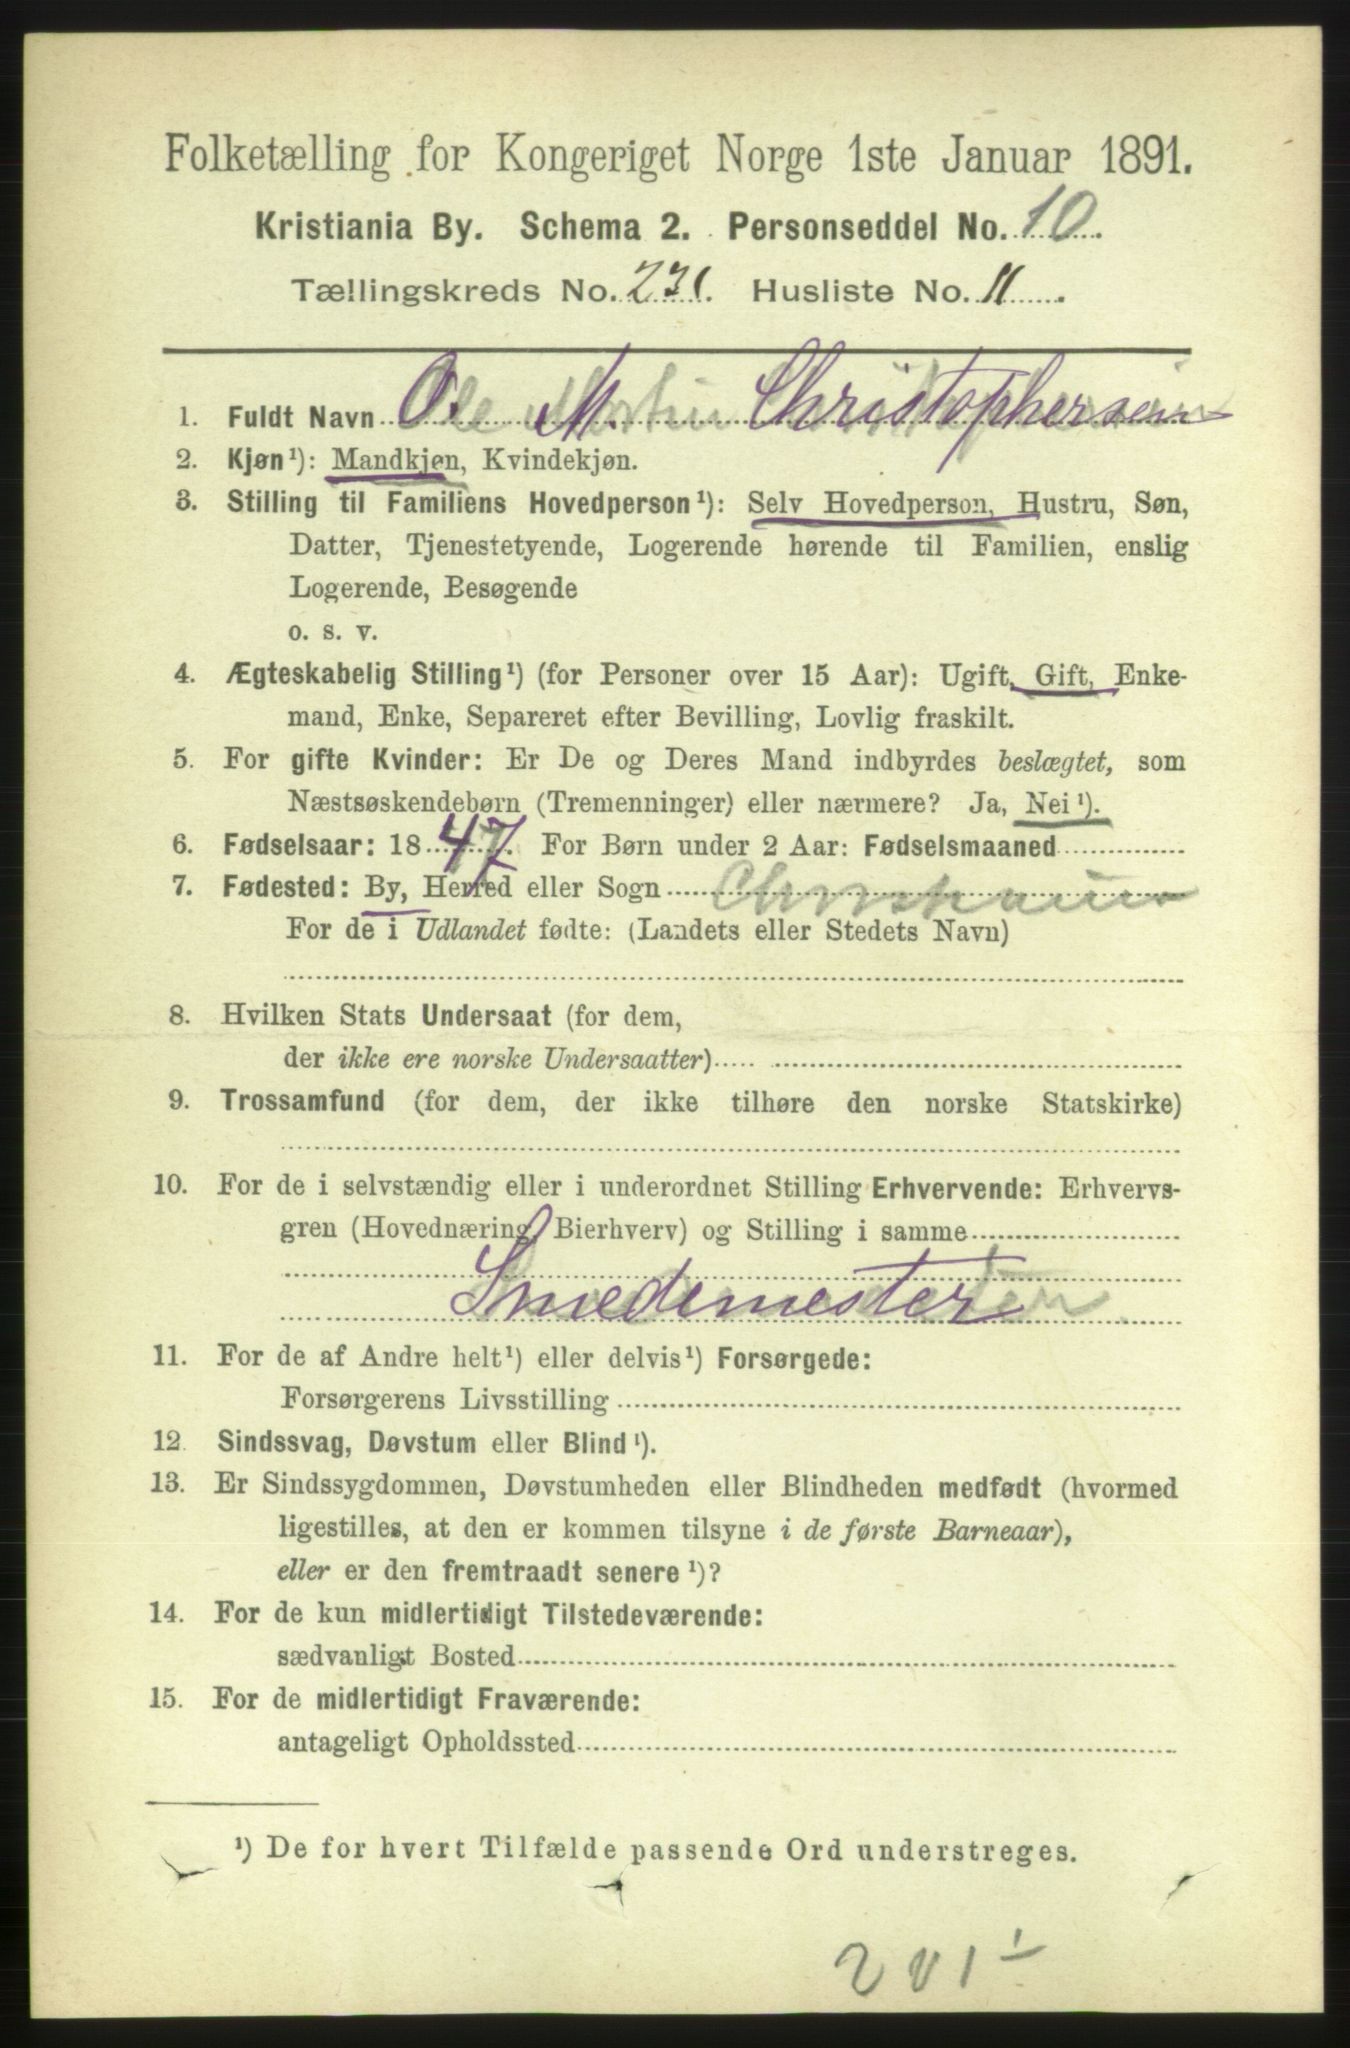 Folketælling for Kongeriget Norge 1ste Januar 1891.
Kristiania By. Schema 2. Personseddel No. 10.
Tællingskreds No. 231. Husliste No. 11.
1. Fuldt Navn O. M. Christophersen
2. Kjøn¹): Mandkjøn, Kvindekjøn.
3. Stilling til Familiens Hovedperson¹): Selv Hovedperson, Hustru, Søn,
Datter, Tjenestetyende, Logerende hørende til Familien, enslig
Logerende, Besøgende
o. s. v.
4. Ægteskabelig Stilling¹) (for Personer over 15 Aar): Ugift, Gift, Enke-
mand, Enke, Separeret efter Bevilling, Lovlig fraskilt.
5. For gifte Kvinder: Er De og Deres Mand indbyrdes beslægtet, som
Næstsøskendebørn (Tremenninger) eller nærmere? Ja, Nei¹).
6. Fødselsaar: 1847. For Børn under 2 Aar: Fødselsmaaned
7. Fødested: By, Herred eller Sogn Christiania
For de i Udlandet fødte: (Landets eller Stedets Navn)
8. Hvilken Stats Undersaat (for dem,
der ikke ere norske Undersaatter)
9. Trossamfund (for dem, der ikke tilhøre den norske Statskirke)
10. For de i selvstændig eller i underordnet Stilling Erhvervende: Erhvervs-
gren (Hovednæring, Bierhverv) og Stilling i samme
Smedemester
11. For de af Andre helt¹) eller delvis¹) Forsørgede:
Forsørgerens Livsstilling
12. Sindssvag, Døvstum eller Blind¹).
13. Er Sindssygdommen, Døvstumheden eller Blindheden medfødt (hvormed
ligestilles, at den er kommen tilsyne i de første Barneaar),
eller er den fremtraadt senere¹)?
14. For de kun midlertidigt Tilstedeværende:
sædvanligt Bosted
15. For de midlertidigt Fraværende:
antageligt Opholdssted
¹) De for hvert Tilfælde passende Ord understreges.